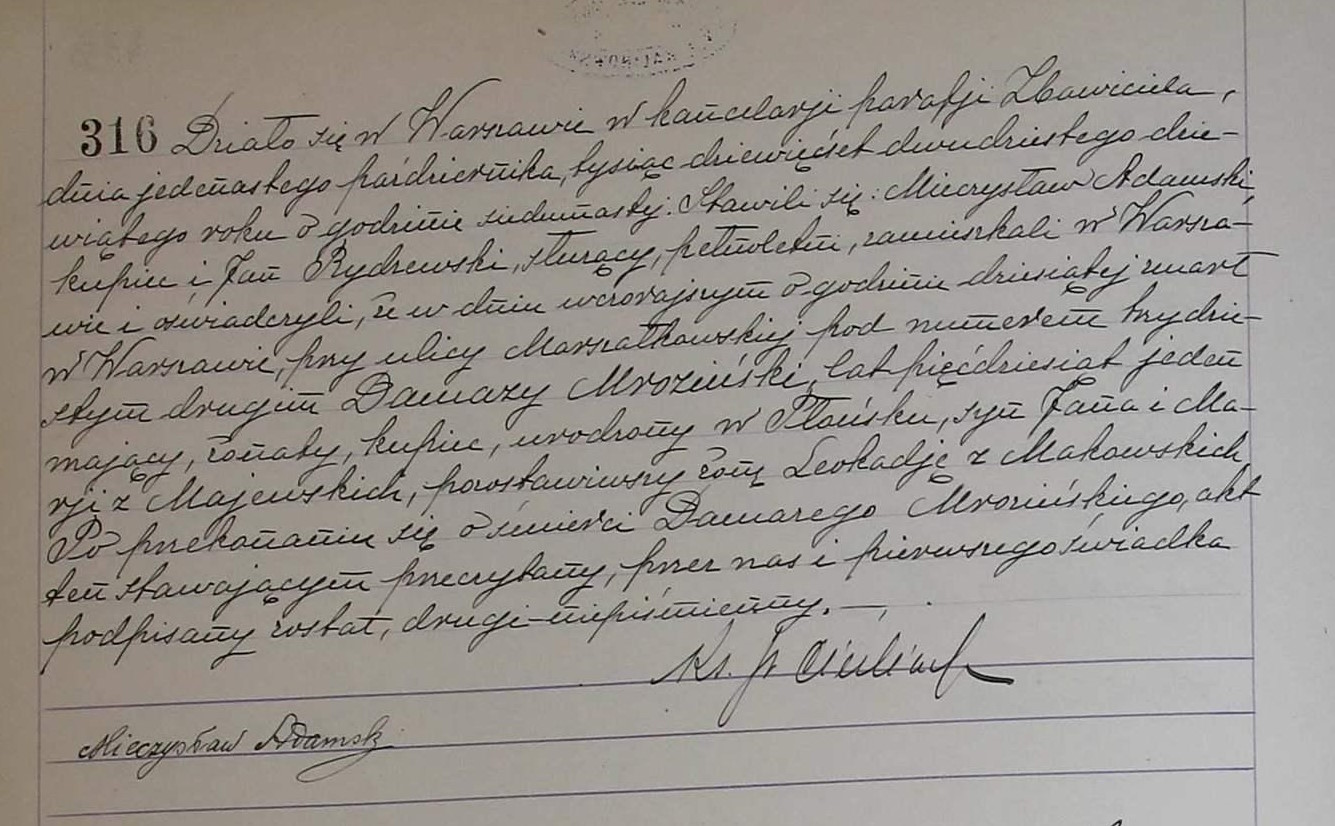 316 Działo się w Warszawie w kancelarji parafji Zbawiciela,
dnia jedenastego października, tysiąc dziewięćset dwudziestego dzie-
wiątego roku o godzinie siedemnastej. Stawili się: Mieczysław Adamski,
kupiec i Jan Rydzewski, służący, pełnoletni, zamieszkali w Warsza-
wie i oświadczyli, że w dniu wczorajszym o godzinie dziesiątej zmarł
w Warszawie, przy ulicy Marszałkowskiej pod numerem trzydzie-
stym drugim Damazy Mroziński, lat pięćdziesiąt jeden
mający, żonaty, kupiec, urodzony w Płońsku, syn Jana i Ma-
rji z Majewskich, pozostawiwszy żonę Leokadję z Makowskich
Po przekonaniu się o śmierci Damazego Mrozińskiego, akt
ten stawającym przeczytany, przez nas i pierwszego świadka
podpisany został, drugi-niepiśmienny. —
Ks.
Mieczysław Adamski